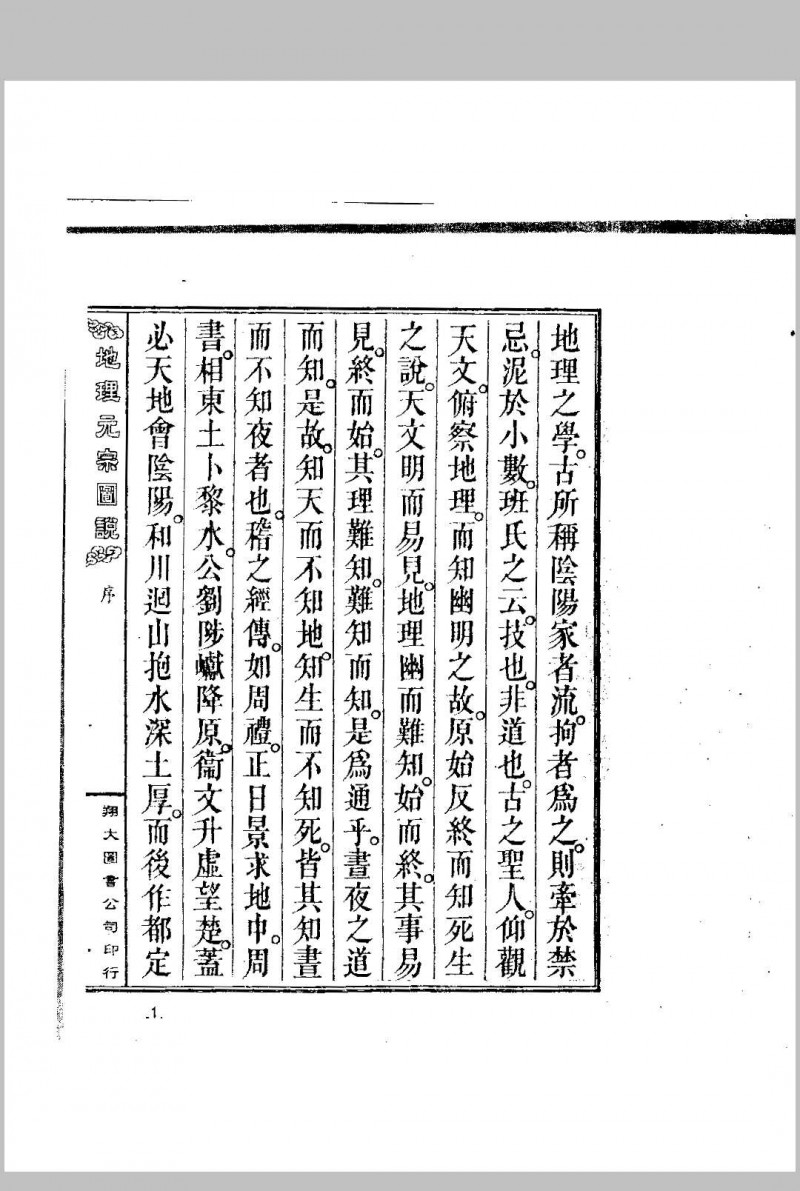 地理之學。古所稱陰陽家者流。拘者爲之。則牽於禁
忌。泥於小數。班氏之云。技也。非道也。古之聖人。仰觀
天文。俯察地理。而知幽明之故。原始反終而知死生
之說。天文明而易見。地理幽而難知。始而終。其事易
見。終而始。其理難知。難知而知。是爲通乎。晝夜之道
而知。是故。知天而不知地。知生而不知死。皆其知晝
而不知夜者也。稽之經傳。如周禮。正日景求地中。周
書。相東土卜黎水。公劉陟巘降原。衞文升虛望楚。蓋
必天地會陰陽。和川迴山抱水深土厚。而後作都定
地理元宗圖說
序
翔大圖書公司印行
1.